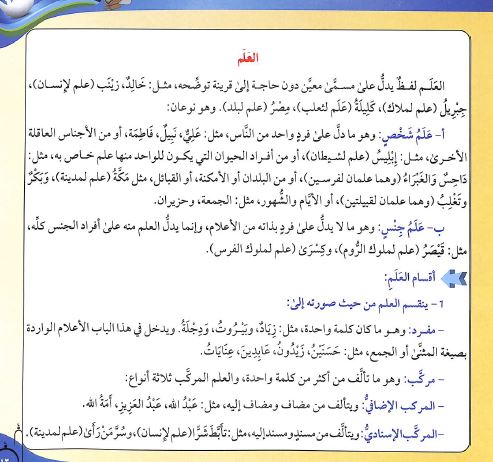 العَلَم
العَلَـم لفـظٌ يدلُّ علىٰ مسـمَّىٰ معيَّن دون حاجـة إلىٰ قرينة توضِّحه، مثـل: خَالِدٌ، زَيْنَب (علم لإنسـان)،
جِبْرِيلُ (علم لملاك)، كَلِيلَةُ (عَلَم لثعلب)، مِصْرُ (علم لبلد). وهو نوعان:
أ- عَلَمُ شَخْصٍ: وهو ما دلَّ علىٰ فردٍ واحد من النَّاس، مثل: عَلِيٌّ، نَبِيلٌ، فَاطِمَة، أو من الأجناس العاقلة
الأخـرىٰ، مثـل: إِبْلِيسُ (علم لشيطان)، أو من أفـراد الحيوان التي يكـون للواحد منها علم خاص به، مثل:
دَاحِسٌ وَالغَبْرَاءُ (وهما علمان لفرسين)، أو من البلدان أو الأمكنة، أو القبائل، مثل مَكَّةُ (علم لمدينة)، وَبَكْرٌ
وَتَغْلِبُ (وهما علمان لقبيلتين)، أو الأيَّام والشُّهور، مثل: الجمعة، وحزيران.
ب- عَلَمُ جِنْسٍ: وهو ما لا يدلُّ علىٰ فردٍ بذاته من الأعلام، وإنما يدلُّ العلم منه علىٰ أفراد الجنس كلِّه،
مثل: قَيْصَرُ (علم لملوك الرُّوم)، وكِسْرَىٰ (علم لملوك الفرس).
أقسام العَلَمِ:
١- ينقسـم العلم من حيث صورته إلىٰ:
- مفـرد: وهـو ما كان كلمة واحدة، مثل: زِيَادٌ، وبَيْـرُوتُ، وَدِجْلَةُ. ويدخل في هذا الباب الأعلام الواردة
بصيغة المثنَّىٰ أو الجمع، مثل: حَسَنَيْنُ، زَيْدُونُ، عَابِدِينَ، عِنَايَاتُ.
- مركَّب: وهو ما تألَّف من أكثر من كلمة واحدة، والعلم المركَّب ثلاثة أنواع:
- المركب الإضافيُّ: ويتألف من مضاف ومضاف إليه، مثل: عَبْدُ الله، عَبْدُ العَزِيزِ، أَمَةُ الله.
- المركَّب الإسناديُّ: ويتألَّف من مسندٍ ومسند إليه، مثل: تأبَّطَ شَرًّا (علم لإنسان)، وسُرَّ مَنْ رَأَىٰ (علم لمدينة).